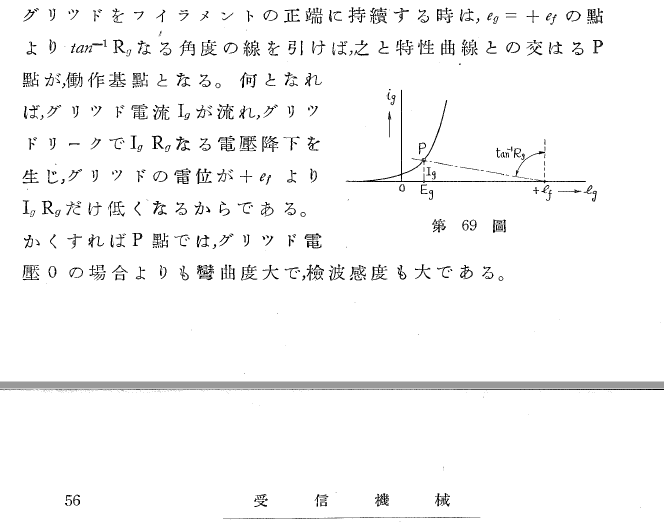 グリツドをフイラメントの正端に持續する時は, eg = + ef の點
より tan⁻¹ Rg なる角度の線を引けば,之と特性曲線との交はる P
點が,働作基點となる。何となれ
ば,グリツド電流 Ig が流れ,グリツ
ドリークで Ig Rg なる電壓降下を
生じ,グリツドの電位が + ef より
Ig Rg だけ低くなるからである。
かくすれば P 點では,グリツド電
壓 0 の場合よりも彎曲度大で,檢波感度も大である。
ig
P
tan⁻¹Rg
Ig
0 Eg +ef eg
第 69 圖
56 受信機械